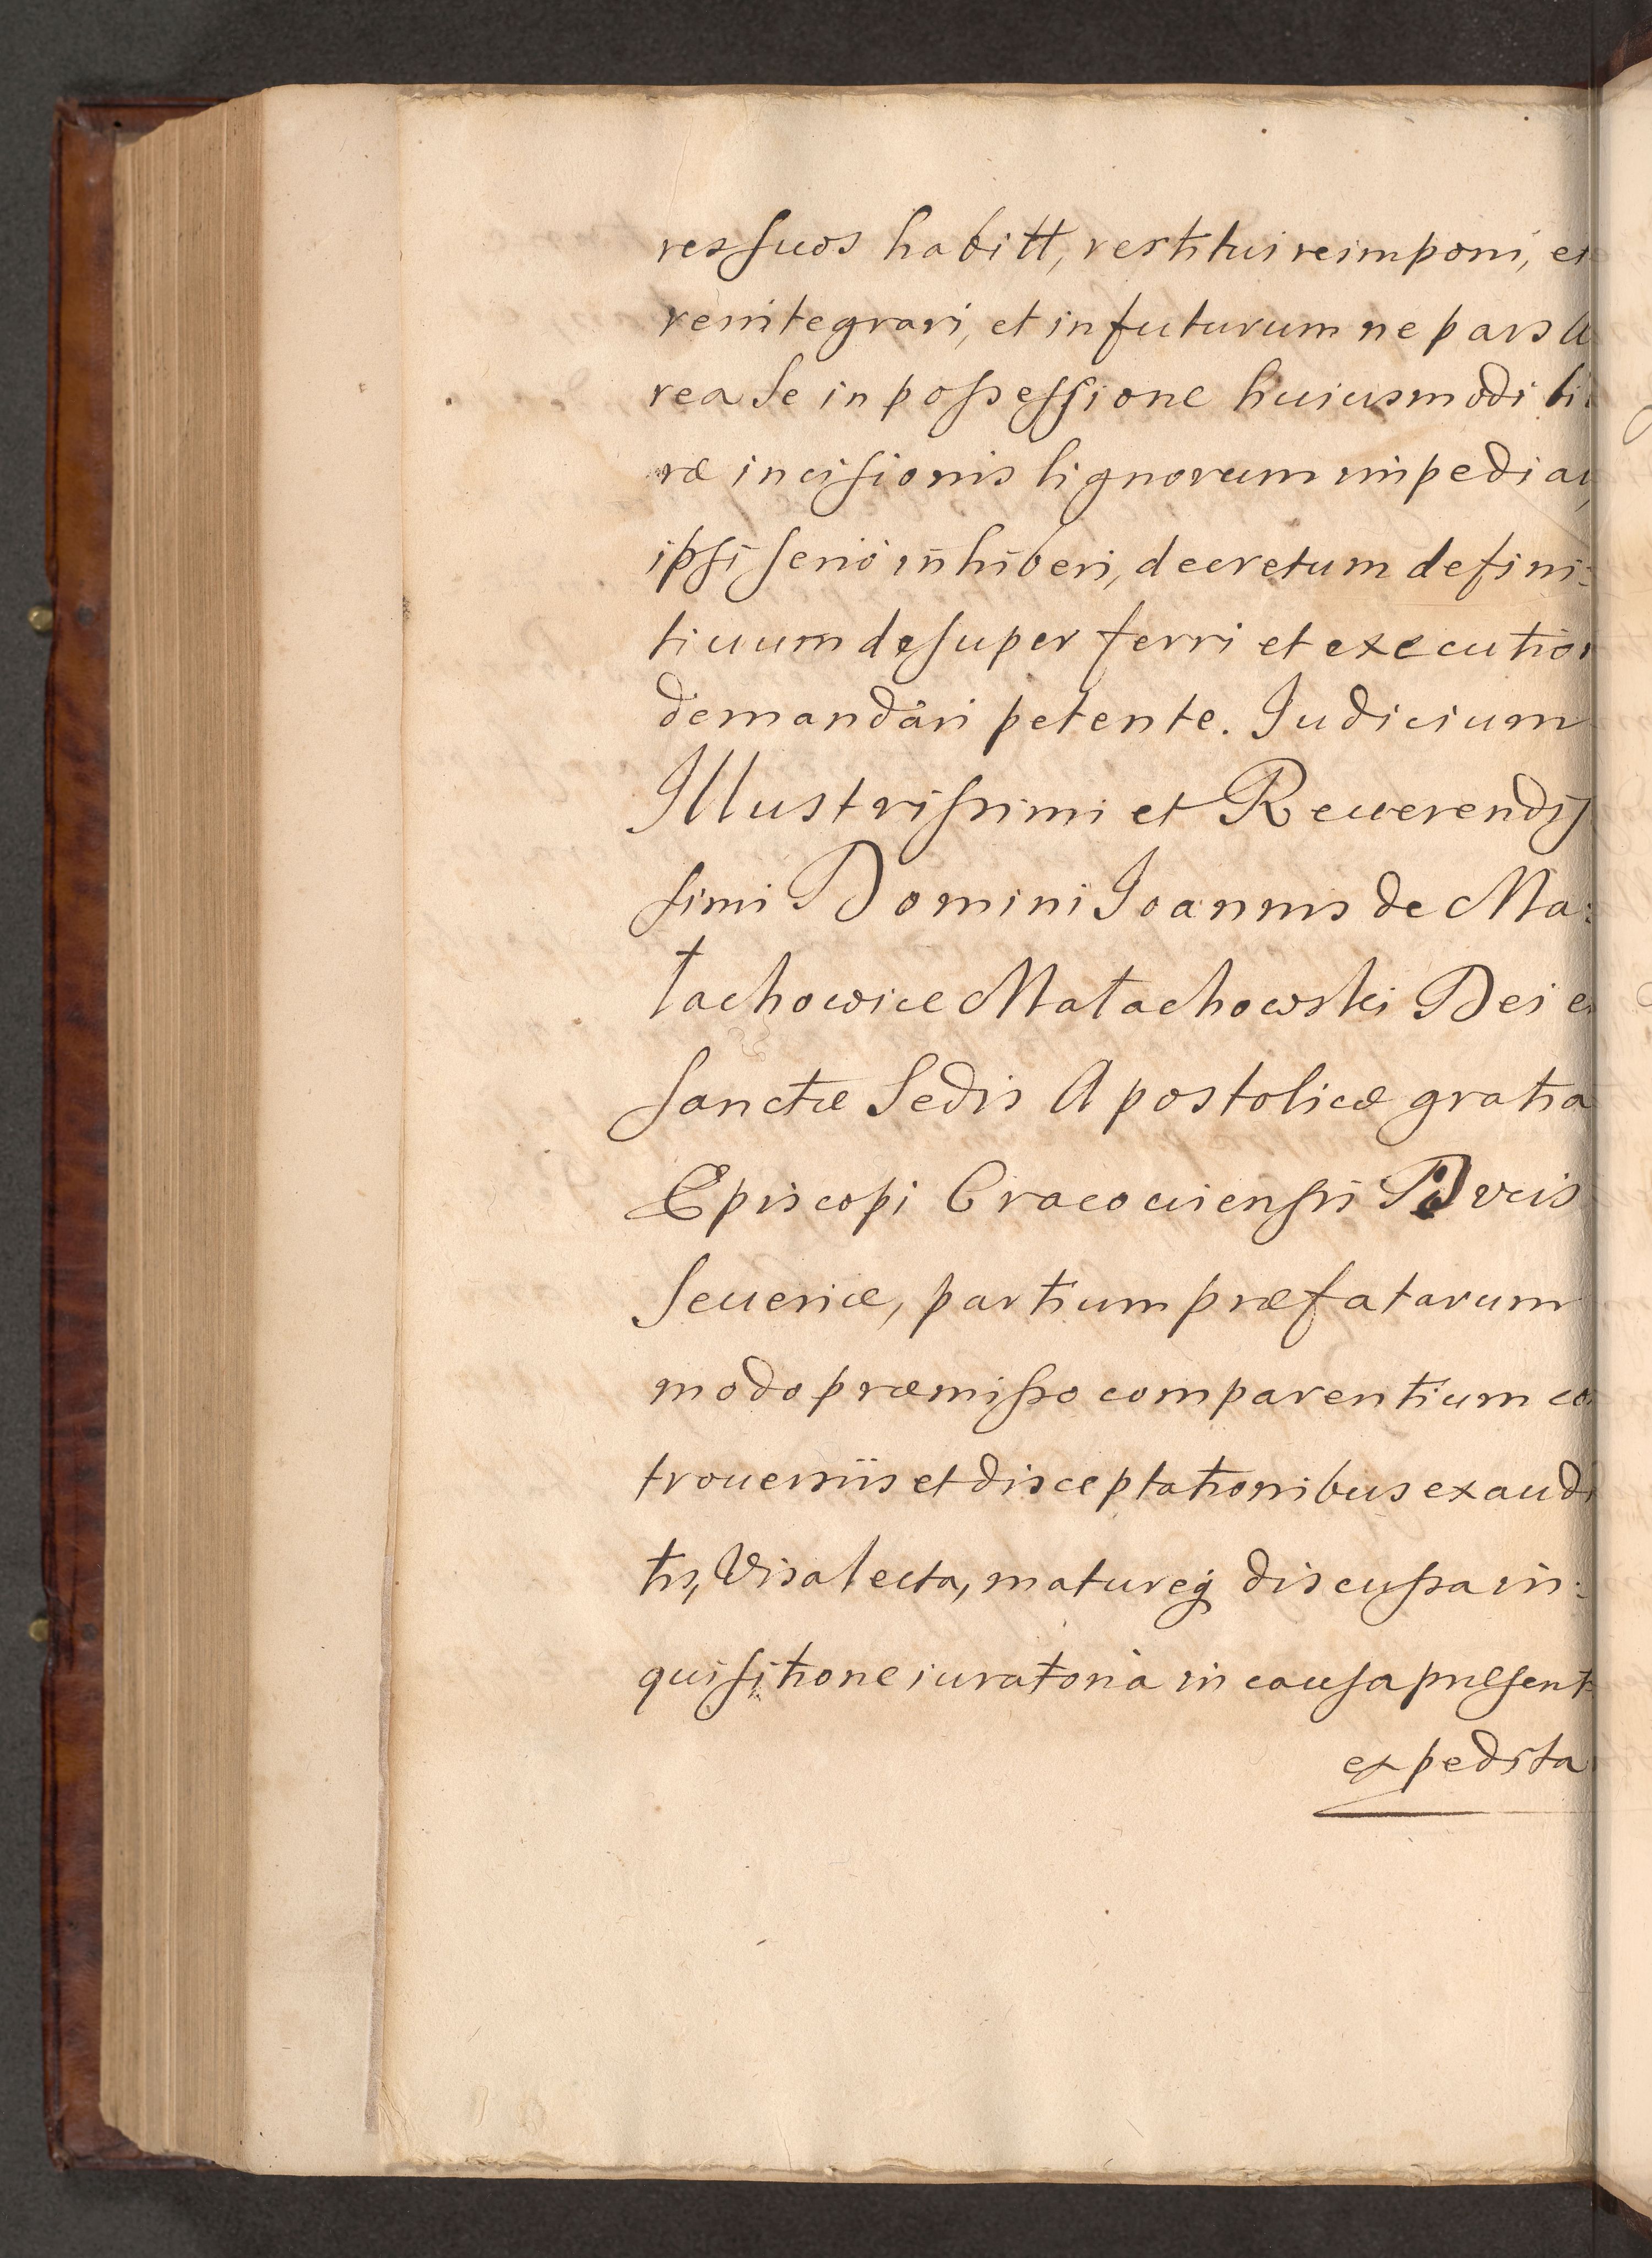 res suos habitt, restitui reimponi, et
reintegrari, et in futurum ne pars
rea se in possessione huiusmodi li
ræ incisionis lignorum impediat,
ipsi serio inhiberi, decretum defini:
tiuum desuper ferri et execution
demandari petente. Judicium
Illustrissimi et Reuerendis
simi Domini Joannis de Ma:
łachowice Małachowski Dei et
Sanctæ Sedis Apostolicæ gratia
Episcopi Cracouiensis Ducis
Seueriæ, partium præfatarum
modo præmisso comparentium con
trouersiis et disceptationibus exaudi
tis, Visa lecta, matureq discussa in:
quisitione iuratoria in causa præsent
expedita